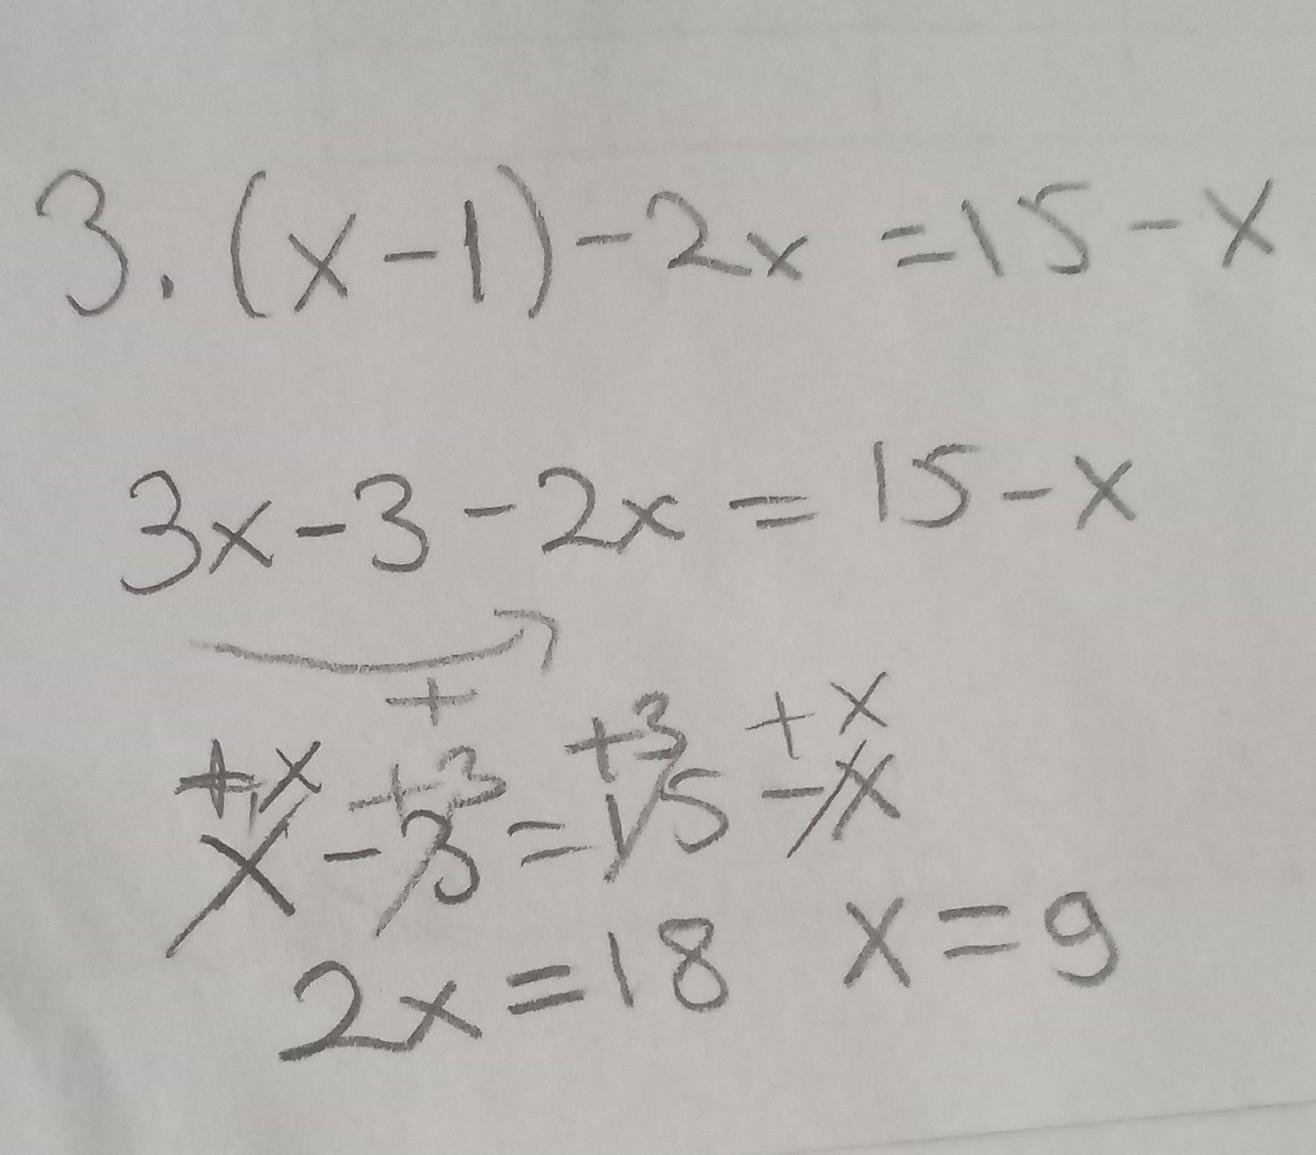 3.(x-1)-2x=15-x
3x-3-2x=15-x
+
+x +3 +3 +x
x-3=15-x
2x=18 x=9